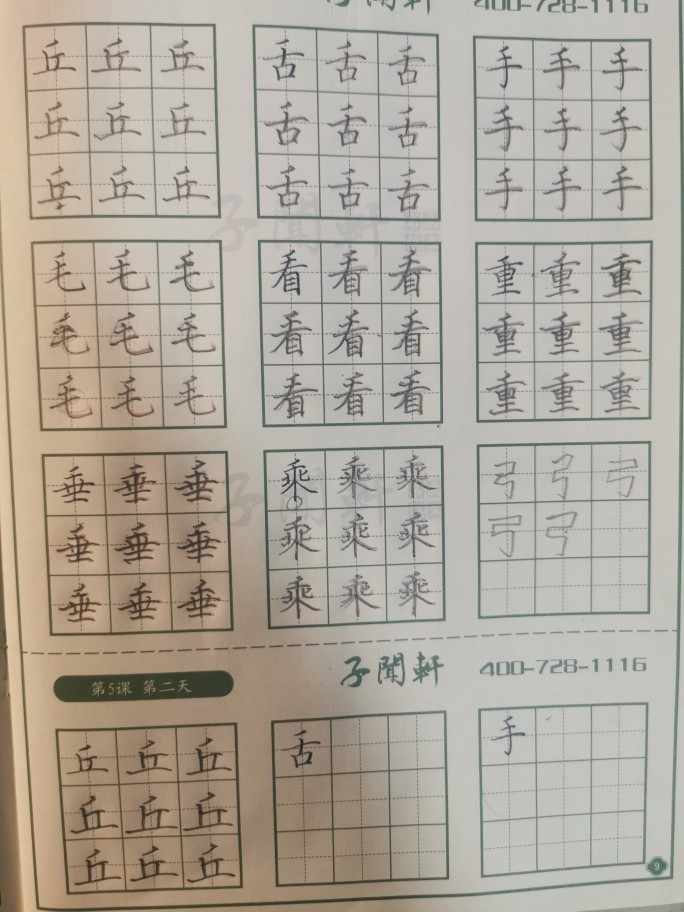 子聞軒 400-728-1116
丘 丘 丘 舌 舌 舌 手 手 手
丘 丘 丘 舌 舌 舌 手 手 手
丘 丘 丘 舌 舌 舌 手 手 手
子聞軒
毛 毛 毛 看 看 看 重 重 重
毛 毛 毛 看 看 看 重 重 重
毛 毛 毛 看 看 看 重 重 重
垂 垂 垂 乘 乘 乘 弓 弓 弓
子聞軒
垂 垂 垂 乘 乘 乘 弓 弓
垂 垂 垂 乘 乘 乘
子聞軒 400-728-1116
第5课 第二天
丘 丘 丘 舌 手
丘 丘 丘
丘 丘 丘
9